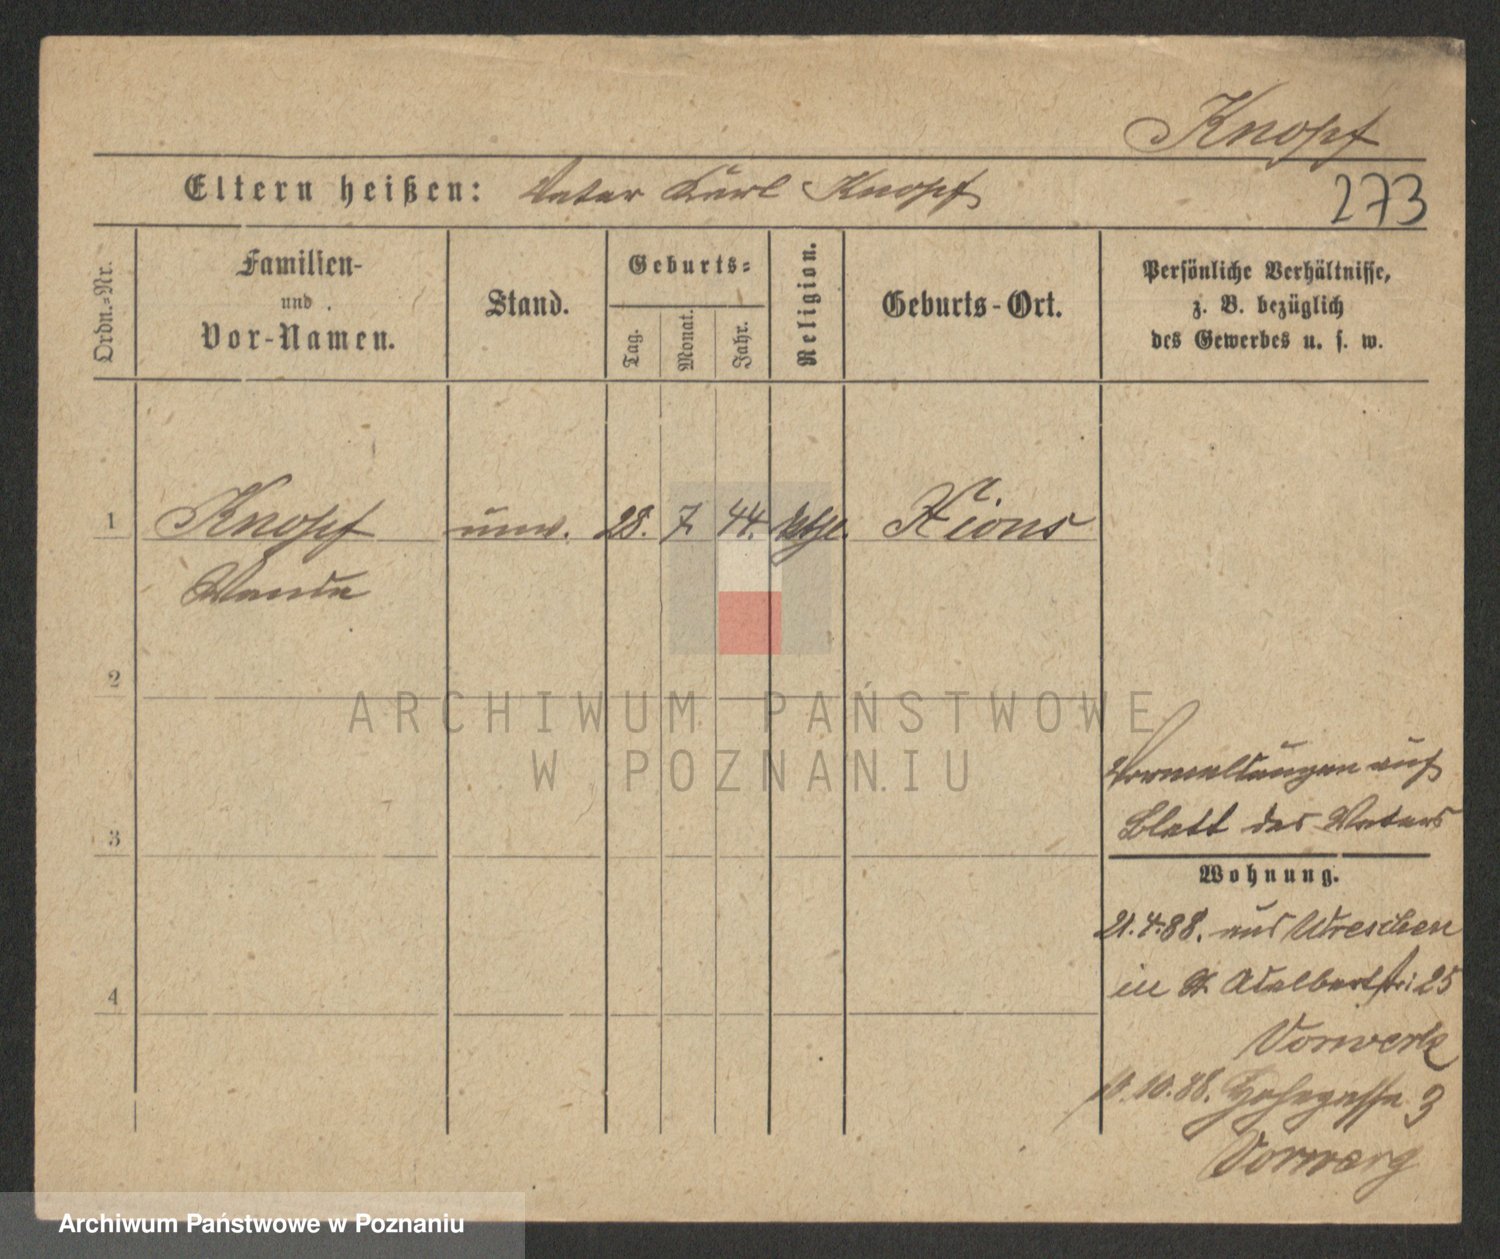 Knopf
Eltern heißen: Vater Karl Knopf
273
Ordn.-Nr.
Familien-
und
Vor-Namen.
Stand.
Geburts-
Tag.
Monat.
Jahr.
Religion.
Geburts-Ort.
Persönliche Verhältnisse,
z. B. bezüglich
des Gewerbes u. s. w.
1 Knopf unv. 28. 7 44. Xions
Wanda
2
ARCHIWUM PAŃSTWOWE
W POZNANIU
Vermeldungen auf
Blatt des Vaters
3
Wohnung.
21.4.88. aus Wreschen
in St Adalbertstr: 25
4
Vorwerk
10.10.88. Hohegasse 3
Vorwerg
Archiwum Państwowe w Poznaniu